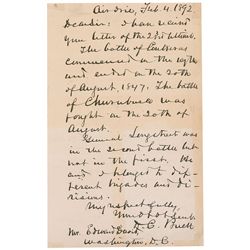 Air drie, Feb. 4. 1892
Dear Sir: I have recievd
your letter of the 2d instant.
The battle of Contreras
commenced on the 19th
and ended on the 20th
of August, 1847. The battle
of Churubusco was
fought on the 20th of
August.
General Longstreet was
in the second battle but
not in the first. He
and I belonged to dif-
ferent brigades and divi-
sions.
Very respectfully,
Your obt Servt.
D. C. Buell
Mr. Edward
Washington, D.C.